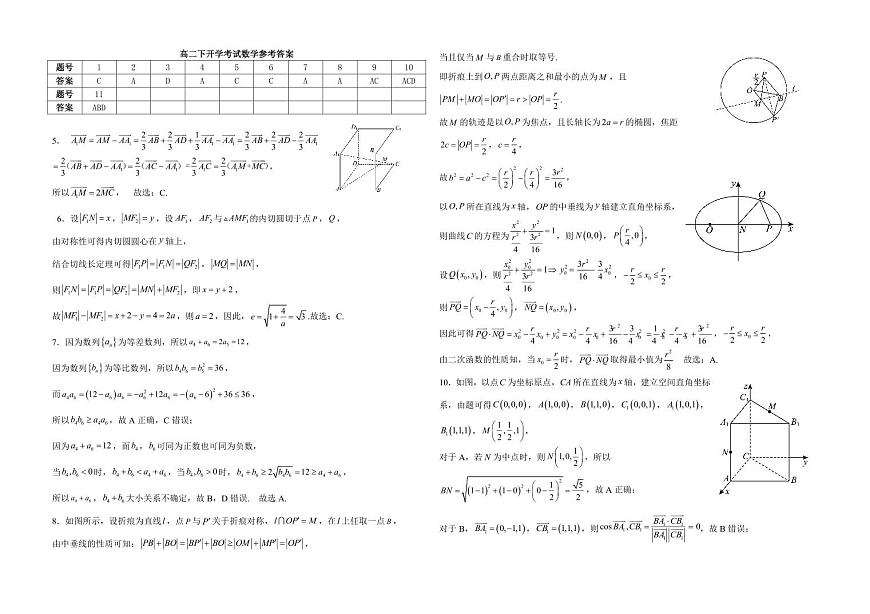 高二下开学考试数学参考答案
题号 1 2 3 4 5 6 7 8 9 10
答案 C A D A C C A A AC ACD
题号 11
答案 ABD
5. A₁M = AM − AA₁ = 2/3 AB + 2/3 AD + 1/3 AA₁ − AA₁ = 2/3 AB + 2/3 AD − 2/3 AA₁
= 2/3 (AB + AD − AA₁) = 2/3 (AC − AA₁) = 2/3 A₁C = 2/3 (A₁M + MC),
所以 A₁M = 2MC, 故选:C.
6. 设|F₁N| = x, |MF₂| = y, 设 AF₁, AF₂ 与 △AMF₁ 的内切圆切于点 P, Q,
由对称性可得内切圆圆心在 y 轴上,
结合切线长定理可得|F₁P| = |F₁N| = |QF₂|, |MQ| = |MN|,
则|F₁N| = |F₁P| = |QF₂| = |MN| + |MF₂|, 即 x = y + 2,
故|MF₁| − |MF₂| = x + 2 − y = 4 = 2a, 则 a = 2, 因此, e = √(1 + 4/a) = √3 .故选:C.
7. 因为数列{aₙ}为等差数列, 所以 a₄ + a₆ = 2a₅ = 12,
因为数列{bₙ}为等比数列, 所以 b₄b₆ = b₅² = 36,
而 a₄a₆ = (12 − a₆)a₆ = −a₆² + 12a₆ = −(a₆ − 6)² + 36 ≤ 36,
所以 b₄b₆ ≥ a₄a₆, 故 A 正确, C 错误;
因为 a₄ + a₆ = 12, 而 b₄, b₆ 可同为正数也可同为负数,
当 b₄, b₆ < 0 时, b₄ + b₆ < a₄ + a₆, 当 b₄, b₆ > 0 时, b₄ + b₆ ≥ 2√(b₄b₆) = 12 ≥ a₄ + a₆,
所以 a₄ + a₆, b₄ + b₆ 大小关系不确定, 故 B, D 错误. 故选 A.
8. 如图所示, 设折痕为直线 l, 点 P 与 P′ 关于折痕对称, l∩OP′ = M, 在 l 上任取一点 B,
由中垂线的性质可知: |PB| + |BO| = |BP′| + |BO| ≥ |OM| + |MP′| = |OP′|,
当且仅当 M 与 B 重合时取等号.
即折痕上到 O, P 两点距离之和最小的点为 M, 且
|PM| + |MO| = |OP′| = r > |OP| = r/2.
故 M 的轨迹是以 O, P 为焦点, 且长轴长为 2a = r 的椭圆, 焦距
2c = |OP| = r/2, c = r/4,
故 b² = a² − c² = (r/2)² − (r/4)² = 3r²/16,
以 O, P 所在直线为 x 轴, OP 的中垂线为 y 轴建立直角坐标系,
则曲线 C 的方程为 x²/(r²/4) + y²/(3r²/16) = 1, 则 N(0,0), P(r/4, 0),
设 Q(x₀, y₀), 则 x₀²/(r²/4) + y₀²/(3r²/16) = 1 ⇒ y₀² = 3r²/16 − 3/4 x₀², −r/2 ≤ x₀ ≤ r/2,
则 PQ = (x₀ − r/4, y₀), NQ = (x₀, y₀),
因此可得 PQ · NQ = x₀² − r/4 x₀ + y₀² = x₀² − r/4 x₀ + 3r²/16 − 3/4 x₀² = 1/4 x₀² − r/4 x₀ + 3r²/16, −r/2 ≤ x₀ ≤ r/2,
由二次函数的性质知, 当 x₀ = r/2 时, PQ · NQ 取得最小值为 r²/8 故选:A.
10. 如图, 以点 C 为坐标原点, CA 所在直线为 x 轴, 建立空间直角坐标
系, 由题可得 C(0,0,0), A(1,0,0), B(1,1,0), C₁(0,0,1), A₁(1,0,1),
B₁(1,1,1), M(1/2, 1/2, 1),
对于 A, 若 N 为中点时, 则 N(1, 0, 1/2), 所以
BN = √((1−1)² + (1−0)² + (0 − 1/2)²) = √5/2, 故 A 正确;
对于 B, BA₁ = (0, −1, 1), CB₁ = (1,1,1), 则 cos BA₁, CB₁ = BA₁ · CB₁ / |BA₁||CB₁| = 0, 故 B 错误;